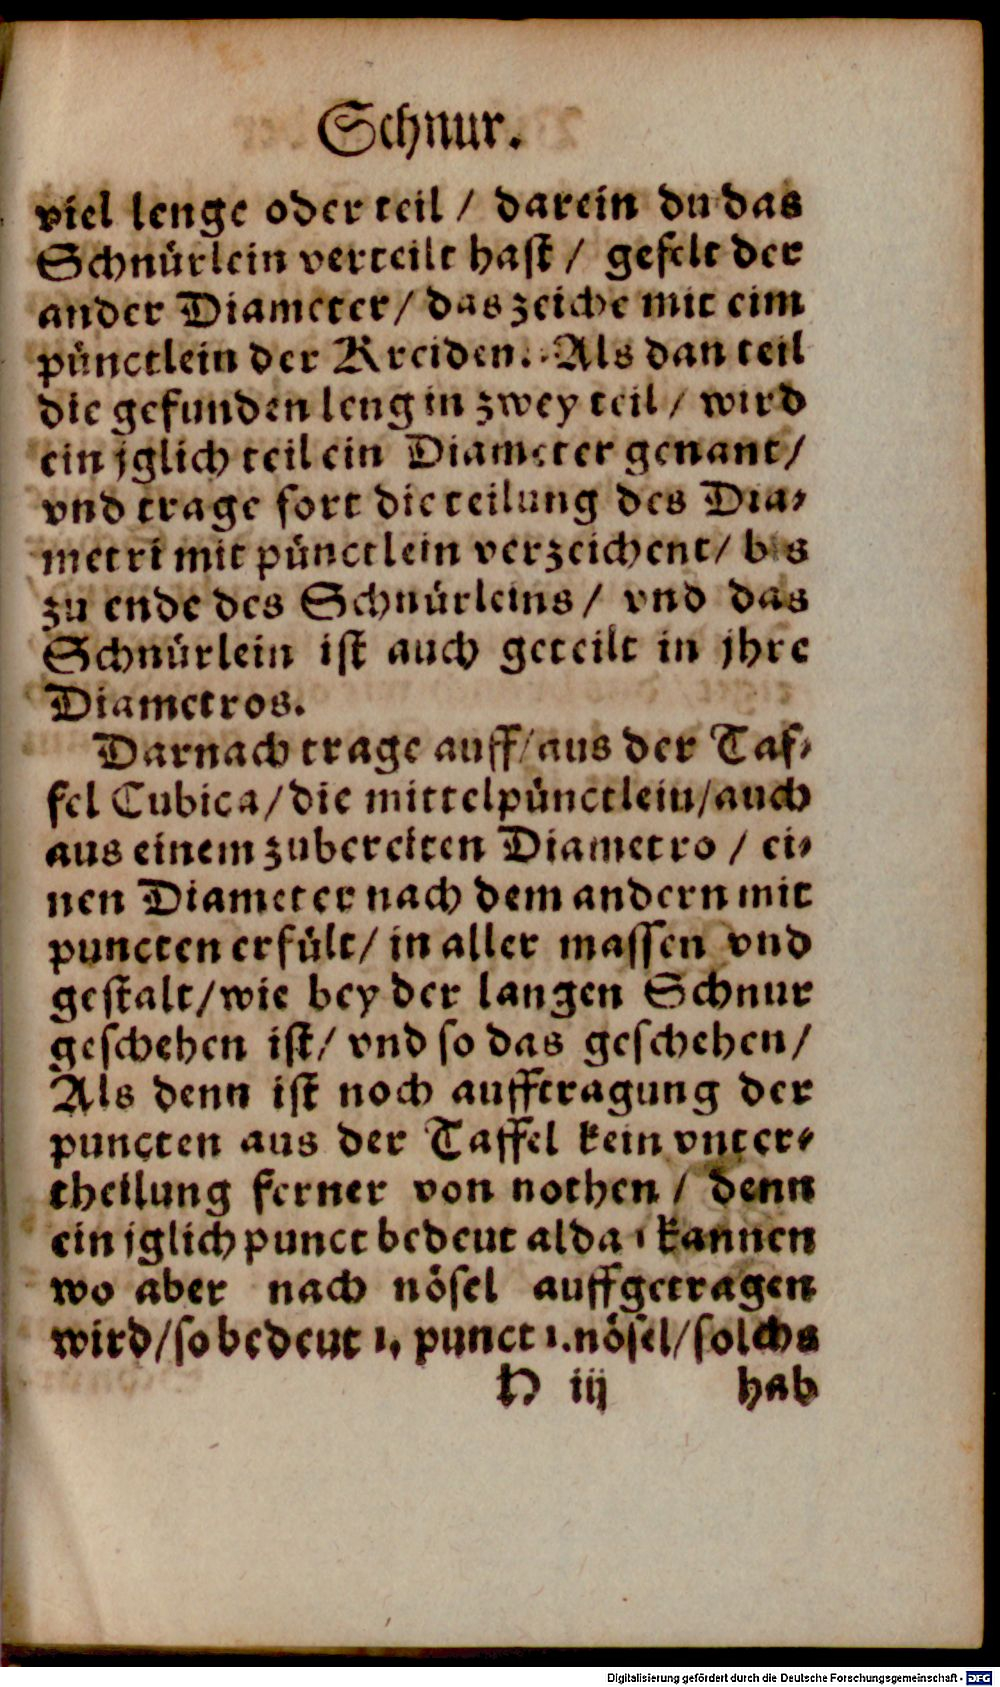 Schnur.
viel lenge oder teil / darein du das
Schnürlein verteilt hast / gefelt der
ander Diameter / das zeiche mit eim
pünctlein der Kreiden. Als dan teil
die gefunden leng in zwey teil / wird
ein jglich teil ein Diameter genant /
vnd trage fort die teilung des Dia-
metri mit pünctlein verzeichent / bis
zu ende des Schnürleins / vnd das
Schnürlein ist auch geteilt in jhre
Diametros.
Darnach trage auff / aus der Taf-
fel Cubica / die mittelpünctlein / auch
aus einem zubereiten Diametro / ei-
nen Diameter nach dem andern mit
puncten erfült / in aller massen vnd
gestalt / wie bey der langen Schnur
geschehen ist / vnd so das geschehen /
Als denn ist noch aufftragung der
puncten aus der Taffel kein vnter-
theilung ferner von nothen / denn
ein jglich punct bedeut alda 1 kannen
wo aber nach nösel auffgetragen
wird / so bedeut 1, punct 1. nösel / solchs
H iij hab
Digitalisierung gefördert durch die Deutsche Forschungsgemeinschaft - DFG